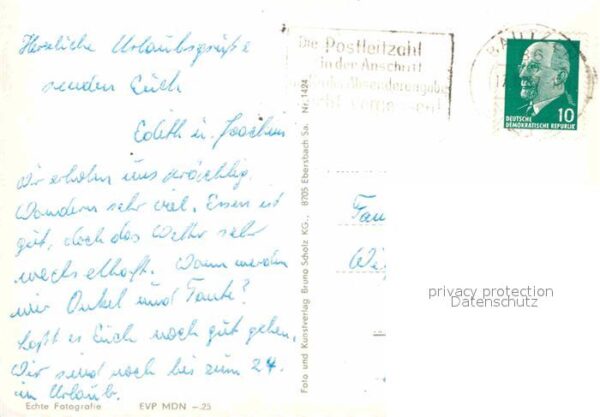 Herzliche Urlaubsgrüße
senden Euch
Edith u. Joachim
Wir erholen uns prächtig.
Wandern sehr viel. Essen ist
gut, doch das Wetter sehr
wechselhaft. Wann werden
wir Onkel und Tante?
Laßt es Euch noch gut gehen.
Wir sind noch bis zum 24.
im Urlaub.
Echte Fotografie EVP MDN –.25
Foto und Kunstverlag Bruno Scholz KG., 8705 Ebersbach Sa. Nr. 1424
Die Postleitzahl
in der Anschrift
Absenderangabe
nicht vergessen!
10
DEUTSCHE
DEMOKRATISCHE REPUBLIK
Fam
privacy protection
Datenschutz